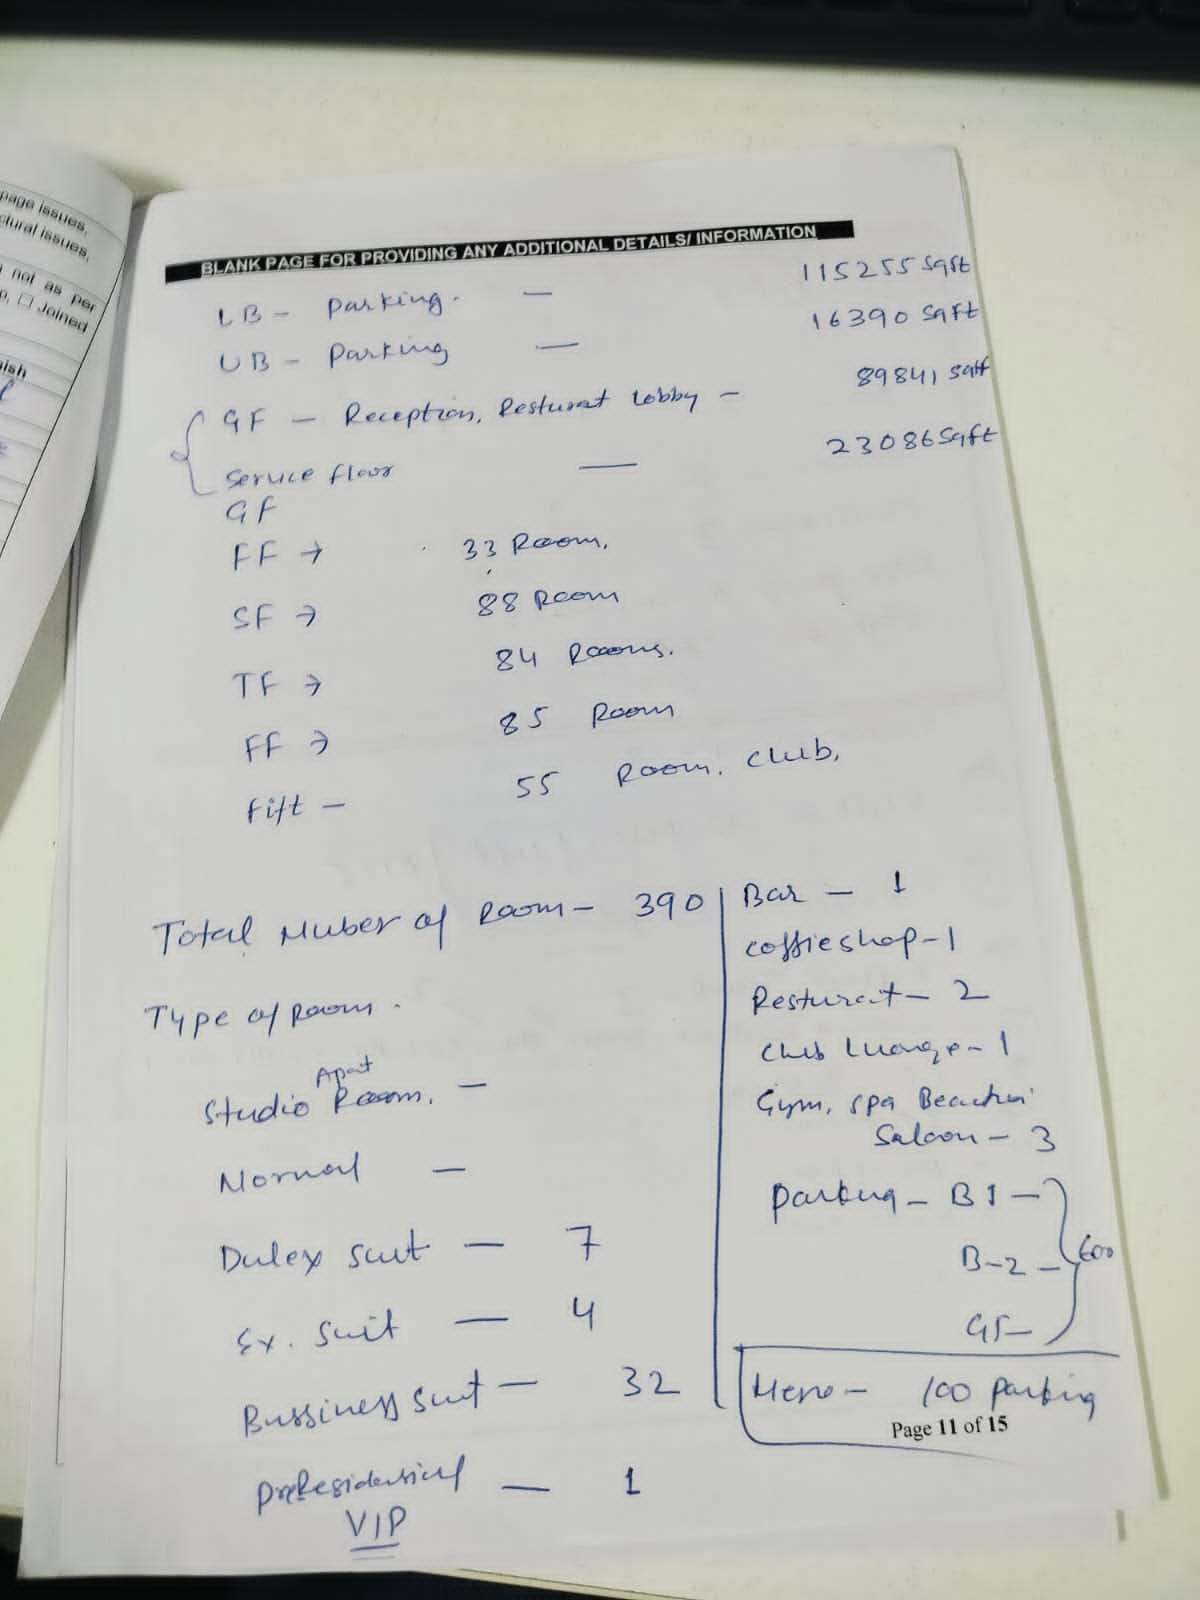 page issues,
ctural issues,
not as per
☐ Joined
BLANK PAGE FOR PROVIDING ANY ADDITIONAL DETAILS/ INFORMATION
LB - Parking. — 115255 Sqft
UB - Parking — 16390 Sqft
GF - Reception, Resturat Lobby - 89841 Sqft
Service floor — 23086 Sqft
GF
FF → 33 Room.
SF → 88 Room
TF → 84 Rooms.
FF → 85 Room
Fift — 55 Room. Club,
Total Nuber of Room - 390
Type of Room.
Apart
Studio Room. —
Normal —
Dulex Suit — 7
Ex. Suit — 4
Bussiness Suit — 32
Presidential — 1
VIP
Bar — 1
Coffieshop - 1
Resturat - 2
Club Luonge - 1
Gym, Spa
Saloon - 3
Parking - B1 —
B-2 — 600
GF —
100 Parking
Page 11 of 15